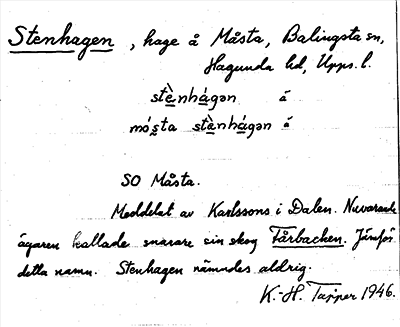 Stenhagen, hage å Måsta, Balingsta sn,
Hagunda hd, Upps. l.
stènhágən å
mó̀sta stènhágən å
SO Måsta.
Meddelat av Karlssons i Dalen. Nuvarande
ägaren kallade snarare sin skog Tårbacken. Jämför
detta namn. Stenhagen nämndes aldrig.
K.-H. Tapper 1946.